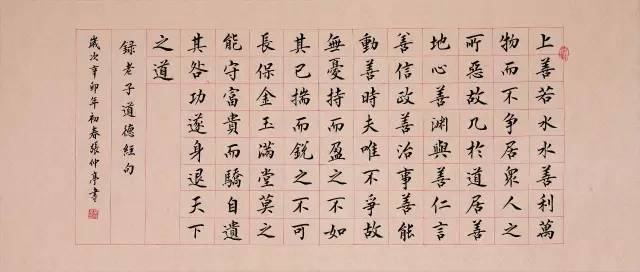 上善若水水善利萬
物而不争居衆人之
所惡故几於道居善
地心善渊與善仁言
善信政善治事善能
動善時夫唯不爭故
無憂持而盈之不如
其已揣而銳之不可
長保金玉滿堂莫之
能守富貴而驕自遺
其咎功遂身退天下
之道
錄老子道德經句
歲次辛卯年初春張仲亭書